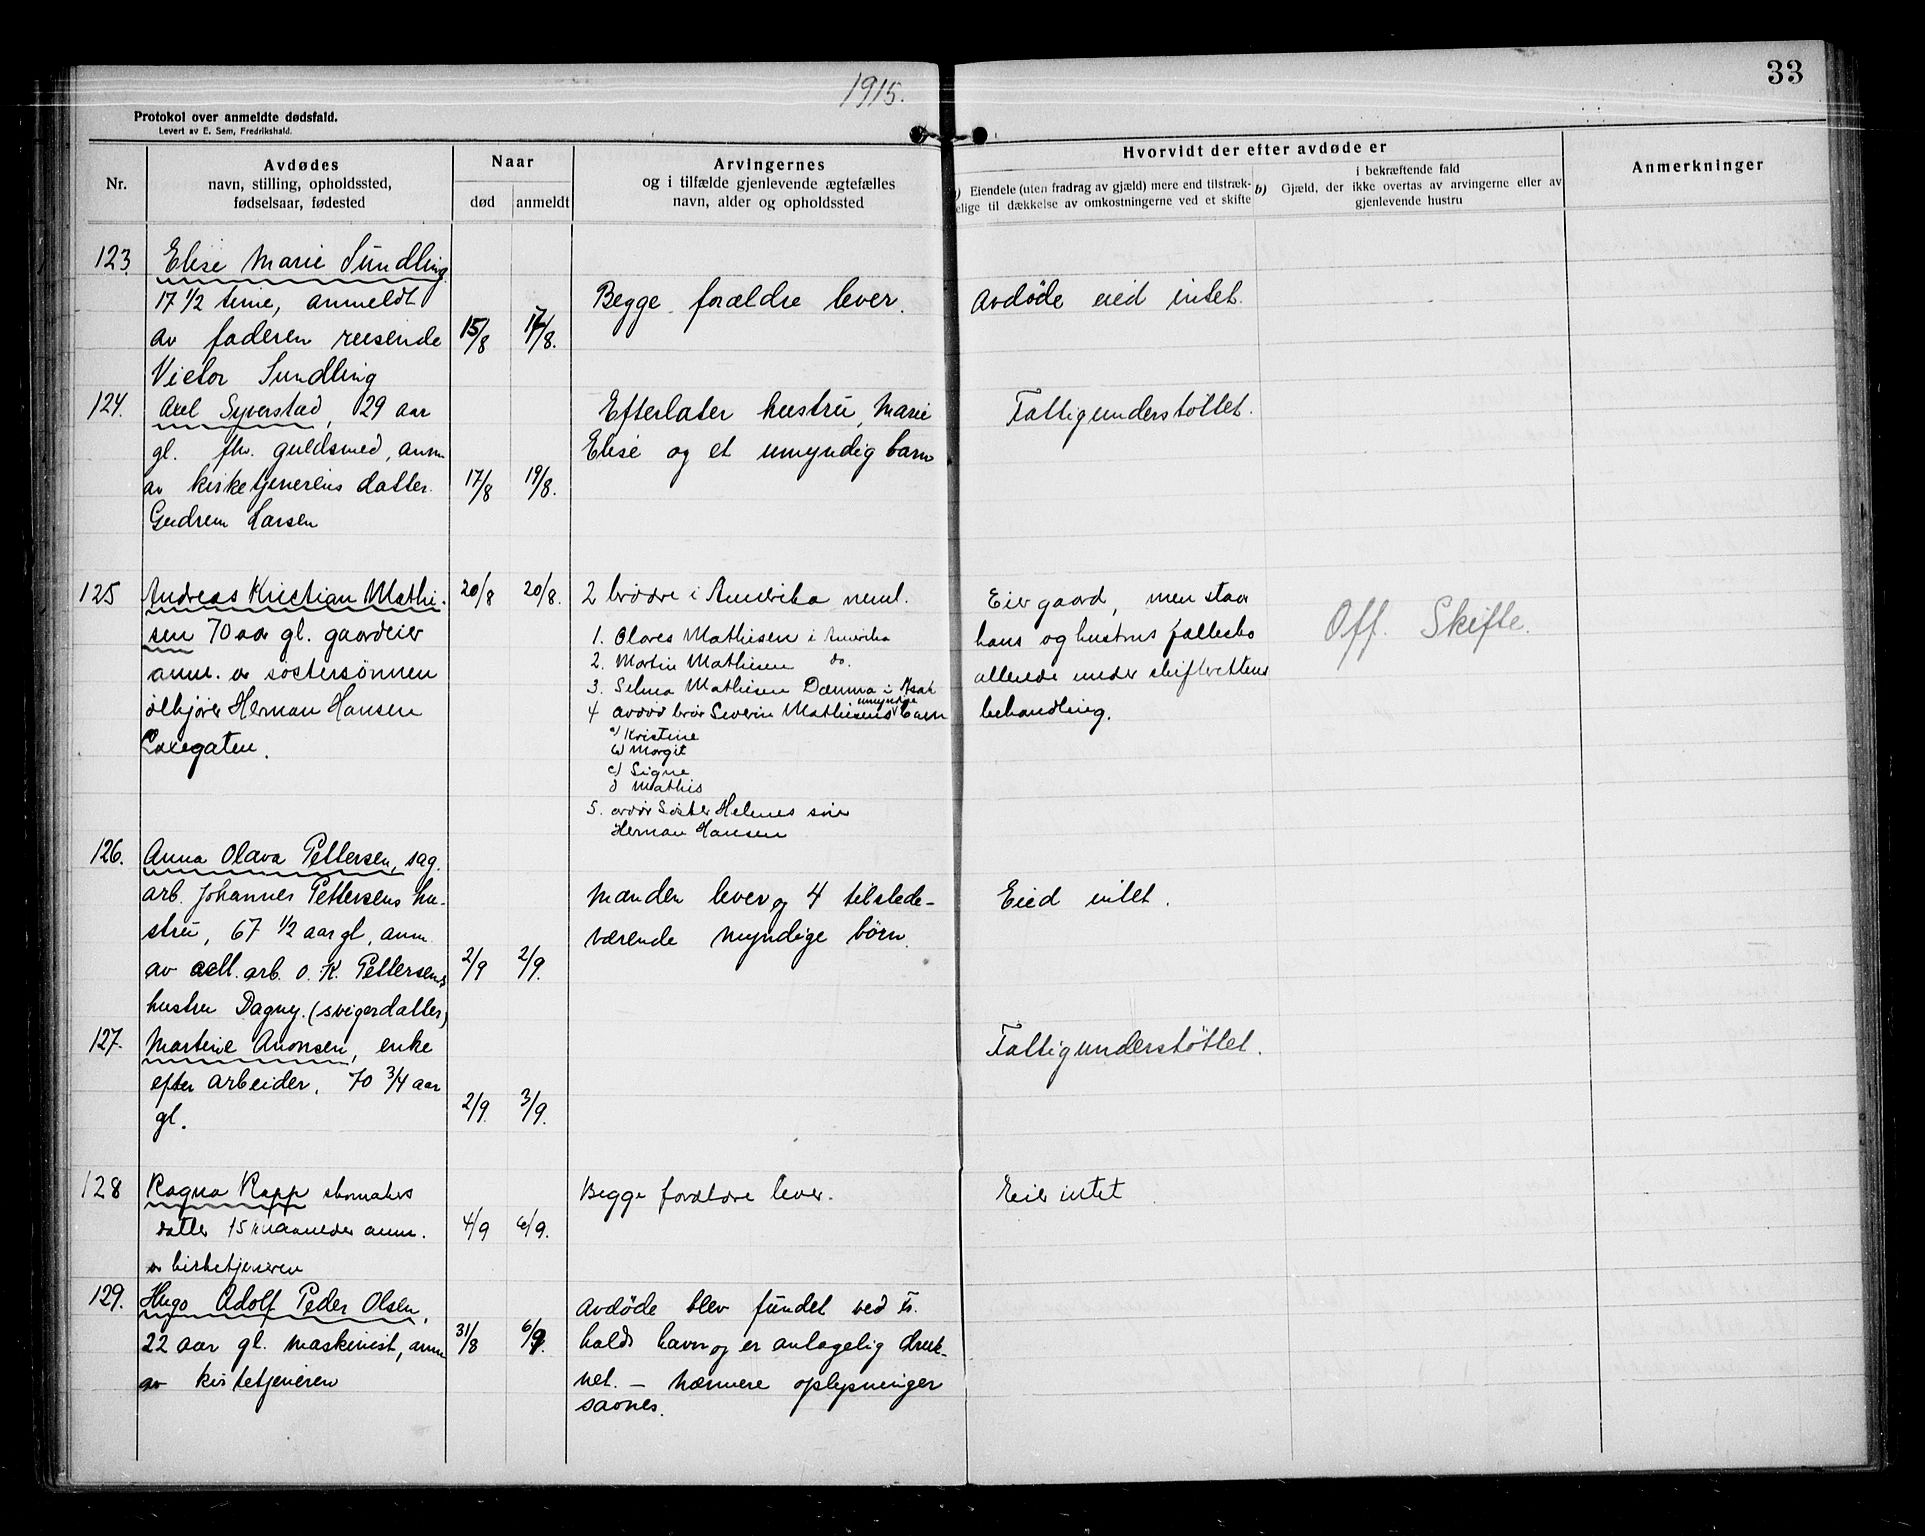 1915.
33
Protokol over anmeldte dødsfald.
Levert av E. Sem, Fredrikshald.
Nr.
Avdødes
navn, stilling, opholdssted,
fødselsaar, fødested
Naar
død
anmeldt
Arvingernes
og i tilfælde gjenlevende ægtefælles
navn, alder og opholdssted
Hvorvidt der efter avdøde er
) Eiendele (uten fradrag av gjæld) mere end tilstræk-
elige til dækkelse av omkostningerne ved et skifte
b)
i bekræftende fald
Gjæld, der ikke overtas av arvingerne eller av
gjenlevende hustru
Anmerkninger
123.
Elise Marie Sundling
17 1/2 time, anmeldt
av faderen reisende
Victor Sundling
15/8
17/8.
Begge forældre lever.
Avdøde eied intet.
124.
Axel Syverstad, 29 aar
gl. fhv. guldsmed, anm
av kirketjenerens datter
Gudrun Larsen
17/8
19/8.
Efterlater hustru, Marie
Elise og et umyndig barn
Fattigunderstøttet.
125
Andreas Kristian Mathi-
sen 70 aar gl. gaardeier
anm. av søstersønnen
ølkjører Herman Hansen
20/8
20/8.
2 brødre i Amerika neml.
1. Olares Mathisen i Amerika
2. Martin Mathisen do.
3. Selma Mathisen Damma i Asak
4 avdød bror Severin Mathisens umyndige barn
a) Kristine
b) Margit
c) Signe
d) Mathis
5. avdød søster Helenes søn
Herman Hansen
Eier gaard, men staar
hans og hustrus fællesbo
allerede under skifterettens
behandling.
Off. Skifte.
126.
Anna Olava Pettersen, sag.
arb. Johannes Pettersens hu-
stru, 67 1/2 aar gl., anm.
av arb. O. K. Pettersens
hustru Dagny. (svigerdatter)
2/9
2/9.
Manden lever og 4 tilstede-
værende myndige børn.
Eied intet.
127.
Martine Aronsen, enke
efter arbeider, 70 3/4 aar
gl.
2/9.
3/9.
Fattigunderstøttet.
128
Ragna Rapp skomakers
datter 15 maaneder anm.
av kirketjeneren
4/9
6/9.
Begge forældre lever.
Eier intet
129.
Hugo Adolf Peder Olsen,
22 aar gl. maskinist, anm
av kirketjeneren
31/8
6/9.
Avdøde blev fundet ved Fr.
halds havn og er antagelig druk-
net. – Nærmere oplysninger
savnes.